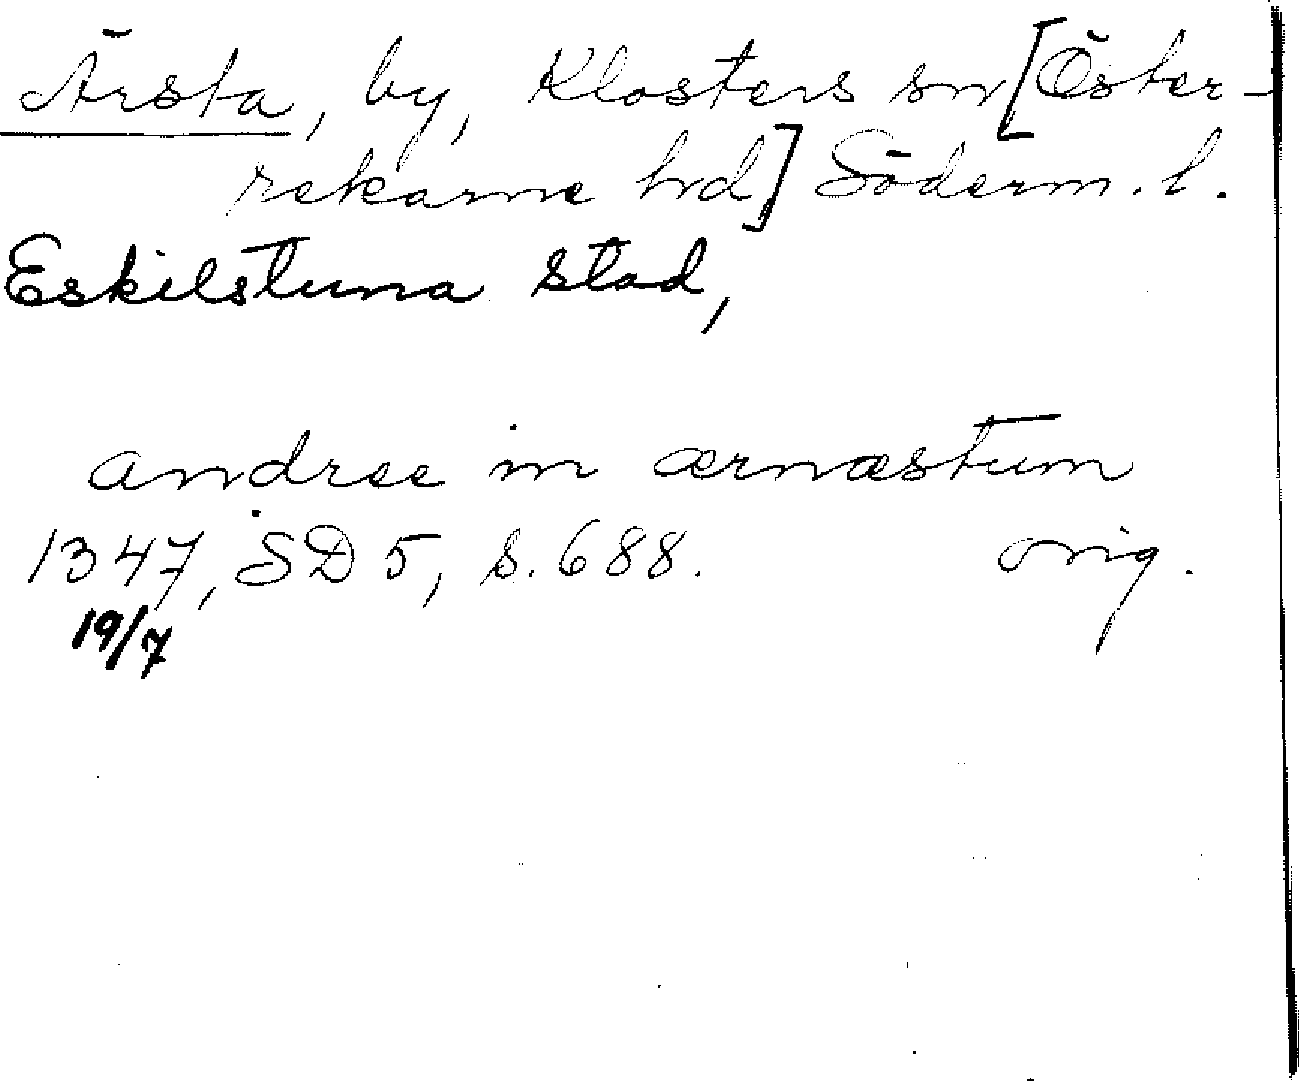 Ärsta, by, Klosters sn [Öster-
rekarne hd] Söderm. l.
Eskilstuna stad,
andree in ærnæstum
1347, SD 5, s. 688. orig.
19/7